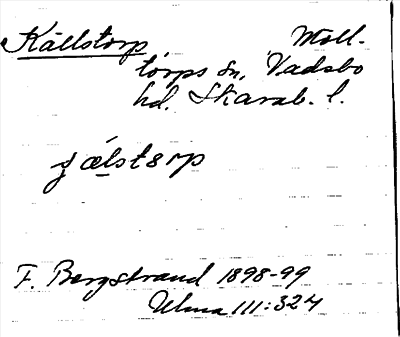 Källstorp Moll-
torps sn, Vadsbo
hd. Skarab. l.
F. Bergstrand 1898-99
Ulma 111:324